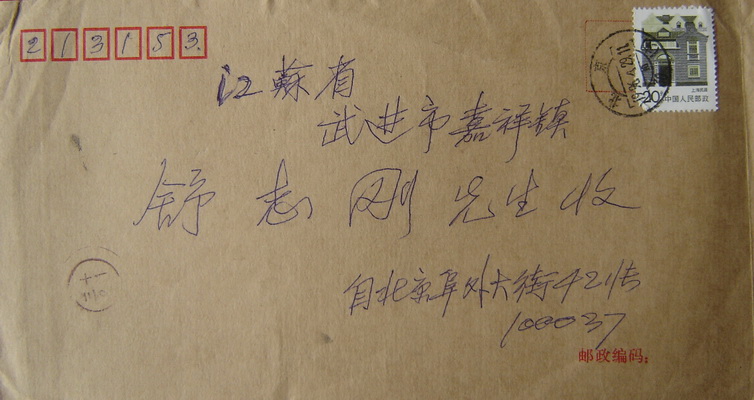 213153
20分
上海民居
中国人民邮政
江蘇省
武进市嘉祥镇
舒志刚先生收
自北京阜外大街42号
100037
邮政编码: